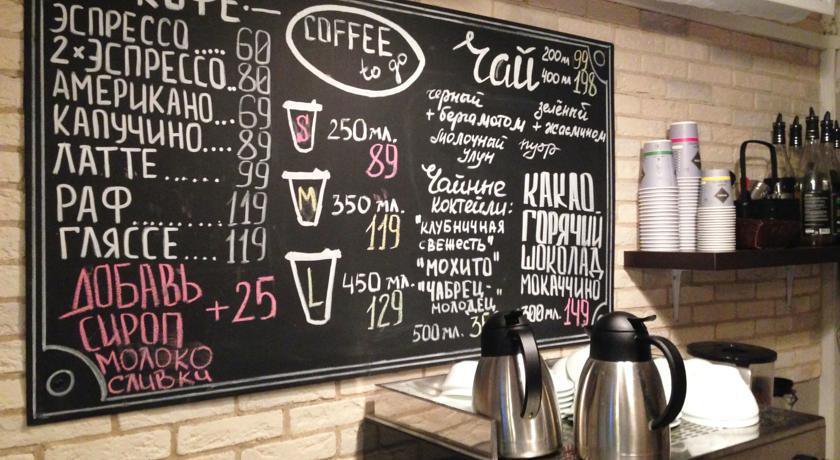 КОФЕ
ЭСПРЕССО..... 60
2×ЭСПРЕССО.. 80
АМЕРИКАНО... 69
КАПУЧИНО.... 89
ЛАТТЕ ...... 99
РАФ......... 119
ГЛЯССЕ..... 119
ДОБАВЬ +25
СИРОП
МОЛОКО
СЛИВКИ
COFFEE
to go
S 250 мл.
89
M 350 мл.
119
L 450 мл.
129
Чай 200 мл 99
400 мл 198
черный
+ бергамотом
молочный
улун
зелёный
+ жасмином
пуэр
Чайные
коктейли:
"КЛУБНИЧНАЯ
СВЕЖЕСТЬ"
"МОХИТО"
"ЧАБРЕЦ-
МОЛОДЕЦ"
500 мл.
КАКАО
ГОРЯЧИЙ
ШОКОЛАД
МОКАЧЧИНО
300 мл. 149